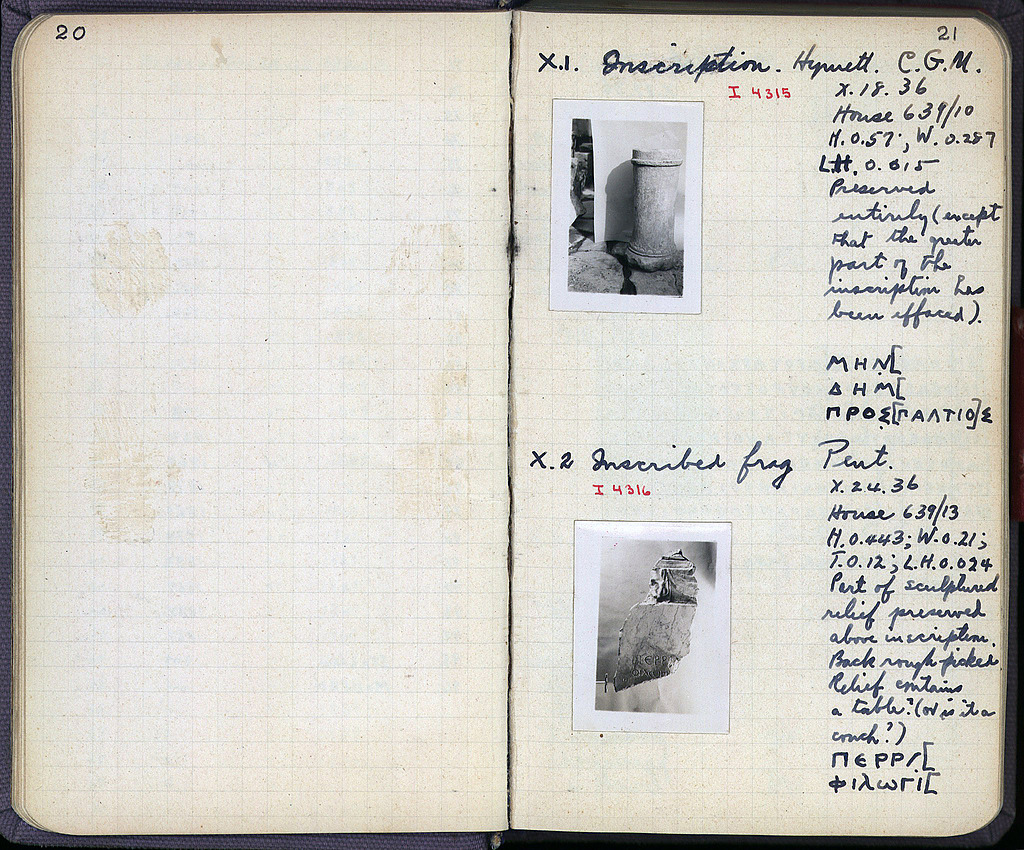 20
21
X.1. Inscription. Hymett. C.G.M.
I 4315
X.18.36
House 639/10
H.0.57; W.0.287
L.H. 0.015
Preserved
entirely (except
that the greater
part of the
inscription has
been effaced).
ΜΗΝ[
ΔΗΜ[
ΠΡΟΣ[ΠΑΛΤΙΟ]Σ
X.2 Inscribed frag Pent.
I 4316
X.24.36
House 639/13
H.0.443; W.0.21;
T.0.12; L.H.0.024
Part of sculptured
relief preserved
above inscription.
Back rough-picked
Relief contains
a table? (or is it a
couch?)
ΠΕΡΡ/[
ΦΙλωΓΙ[